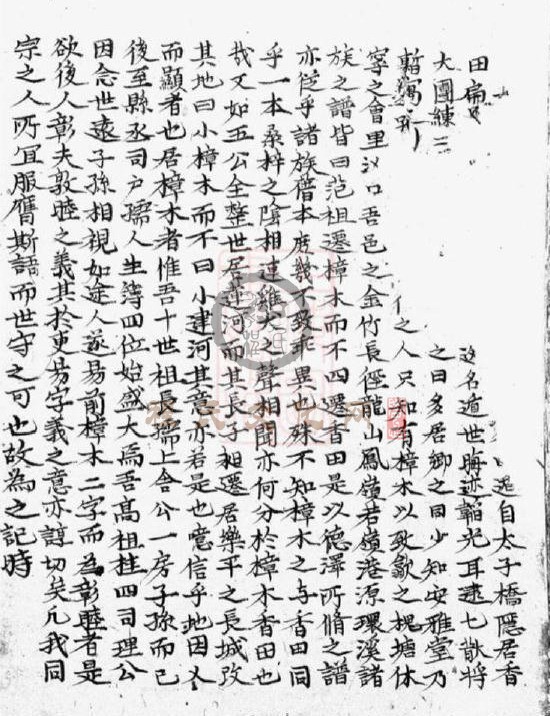 自太子橋隱居香
田扁
名遁世晦迹韜光耳逮七散將
大團練三
之日多居鄉之日少知安雅堂乃
暫寓
之人只知有樟木以致歙之槐塘休
寧之會里汊口吾邑之金竹長徑龍山鳳嶺若嶺港源環溪諸
族之譜皆曰范祖遷樟木而不四遷香田是以德澤所脩之譜
亦從乎諸族舊本庶幾不致乖異也殊不知樟木之与香田同
乎一本桑梓之陰相連雞犬之聲相聞亦何分於樟木香田也
哉又如五公全整世居蓮河而其長子相遷居樂平之長城改
其地曰小樟木而不曰小建河其意亦若是也噫信乎地因人
而顯者也居樟木者惟吾十世祖長孺上舍公一房子孫而已
後至縣丞司户孺人生簿四位始盛大焉吾髙祖桂四司理公
因念世遠子孫相視如途人遂易前樟木二字而為彰睦者是
欲後人彰夫敦睦之義其於更易字義之意亦諄切矣凡我同
宗之人所宜服膺斯語而世守之可也故為之記時